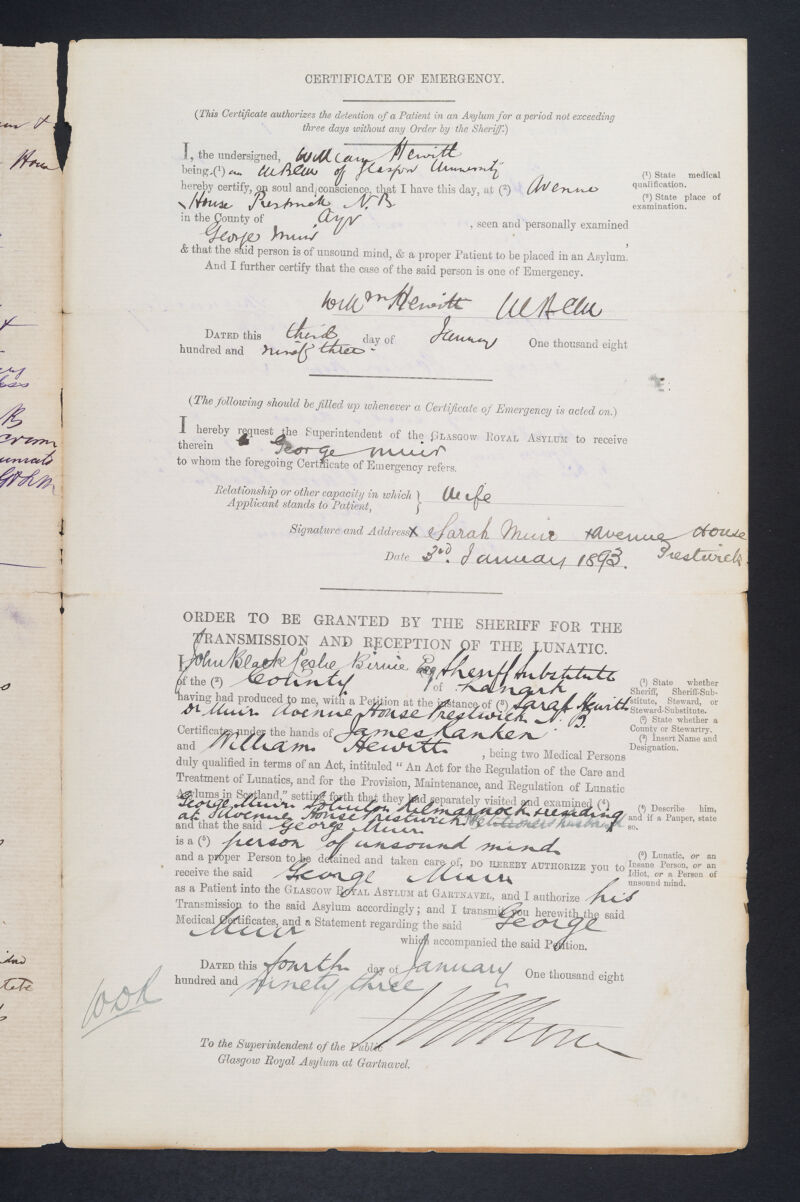 CERTIFICATE OF EMERGENCY.
(This Certificate authorizes the detention of a Patient in an Asylum for a period not exceeding
three days without any Order by the Sheriff.)
I, the undersigned, William Hewitt
being (¹) an of Glasgow University
hereby certify, on soul and conscience, that I have this day, at (²) Avenue
House Prestwick N.B
in the County of Ayr , seen and personally examined
George Muir ,
& that the said person is of unsound mind, & a proper Patient to be placed in an Asylum.
And I further certify that the case of the said person is one of Emergency.
(¹) State medical
qualification.
(²) State place of
examination.
Willm Hewitt
DATED this third day of January One thousand eight
hundred and ninety three.
(The following should be filled up whenever a Certificate of Emergency is acted on.)
I hereby request the Superintendent of the GLASGOW ROYAL ASYLUM to receive
therein George Muir
to whom the foregoing Certificate of Emergency refers.
Relationship or other capacity in which } Wife
Applicant stands to Patient,
Signature and Address x Sarah Muir Avenue House
Date 3rd. January 1893. Prestwick
ORDER TO BE GRANTED BY THE SHERIFF FOR THE
TRANSMISSION AND RECEPTION OF THE LUNATIC.
I, John Black Leslie Birnie Esq Sheriff Substitute
of the (²) County of Lanark
having had produced to me, with a Petition at the instance of (³) Sarah Hewitt
or Muir Avenue House Prestwick N.B.
Certificates under the hands of James Ranken
and William Hewitt , being two Medical Persons
duly qualified in terms of an Act, intituled “An Act for the Regulation of the Care and
Treatment of Lunatics, and for the Provision, Maintenance, and Regulation of Lunatic
Asylums in Scotland,” setting forth that they had separately visited and examined (⁴)
George Muir Solicitor Kilmarnock residing
at Avenue House Prestwick Petitioner's husband
and that the said George Muir
is a (⁵) person of unsound mind
and a proper Person to be detained and taken care of, DO HEREBY AUTHORIZE you to
receive the said George Muir
as a Patient into the GLASGOW ROYAL ASYLUM AT GARTNAVEL, and I authorize his
Transmission to the said Asylum accordingly; and I transmit you herewith the said
Medical Certificates, and a Statement regarding the said George
Muir which accompanied the said Petition.
(¹) State whether
Sheriff, Sheriff-Sub-
stitute, Steward, or
Steward-Substitute.
(²) State whether a
County or Stewartry.
(³) Insert Name and
Designation.
(⁴) Describe him,
and if a Pauper, state
so.
(⁵) Lunatic, or an
Insane Person, or an
Idiot, or a Person of
unsound mind.
DATED this fourth day of January One thousand eight
hundred and ninety three
To the Superintendent of the Public
Glasgow Royal Asylum at Gartnavel.